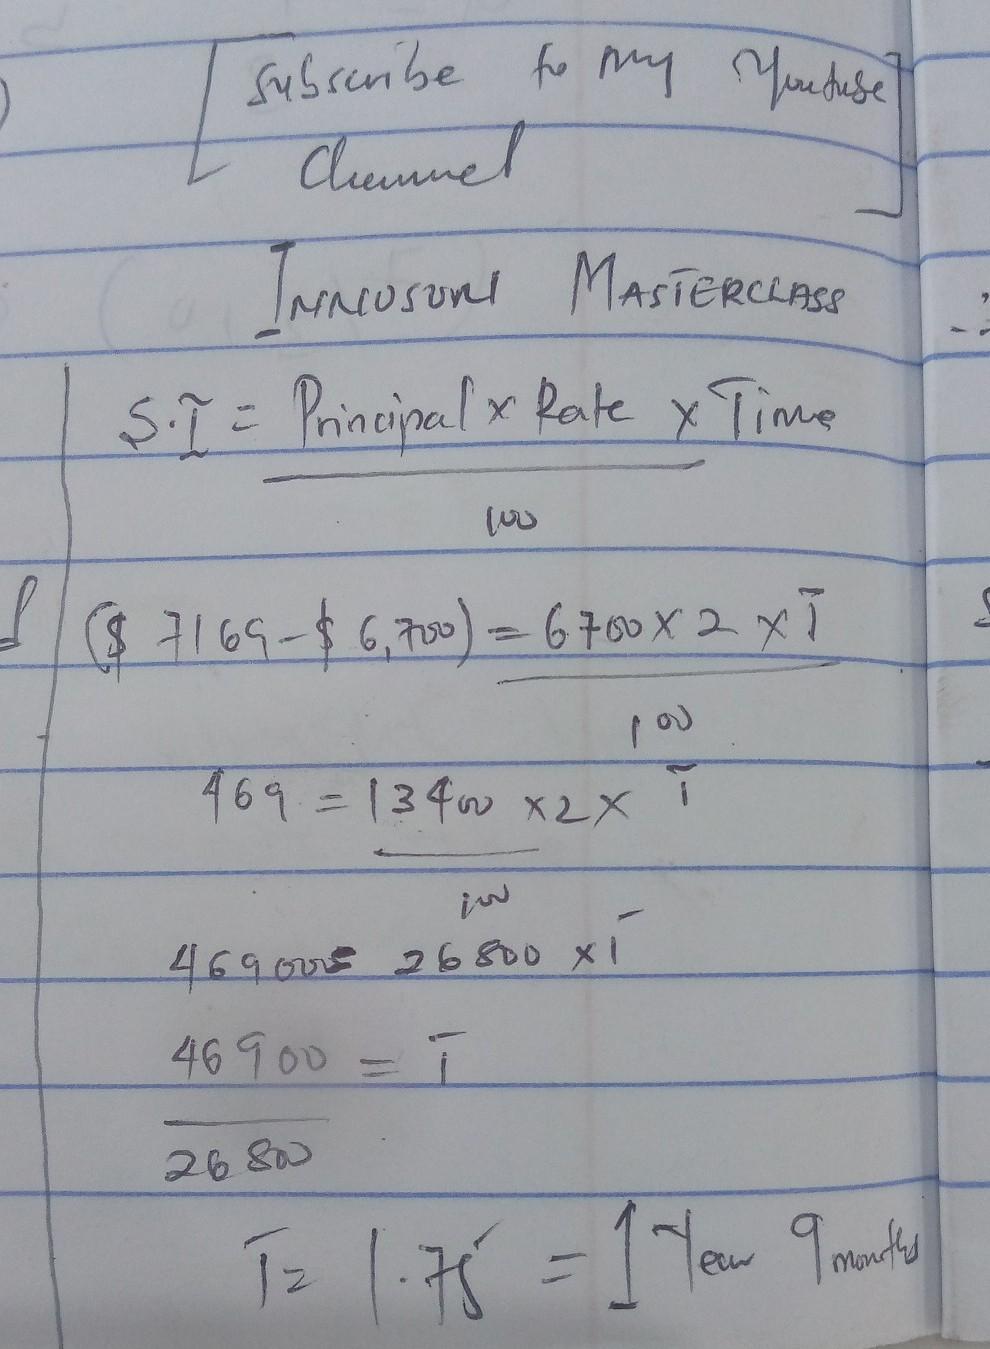 [Subscribe to my Youtube
Channel]
INNOSONI MASTERCLASS
S.I = Principal x Rate x Time
100
($ 7169 - $ 6,700) = 6700 x 2 x T
100
469 = 13400 x 2 x T
100
46900 = 26800 x T
46900 = T
26800
T = 1.75 = 1 Year 9 months